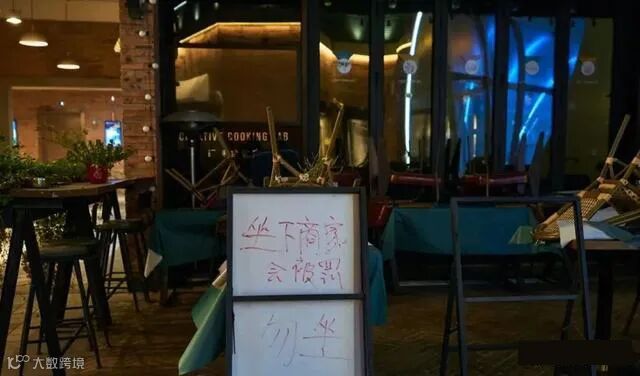 CREATIVE COOKING LAB
坐下商家
会被罚
勿坐
大数跨境